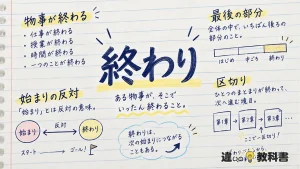 物事が終わる
・仕事が終わる
・授業が終わる
・時間が終わる
・一つのことが終わる
終わり
ある物事が、そこで
いったん 終わること。
最後の部分
全体の中で、いちばん後ろの
部分のこと。
はじめ
中ごろ
終わり
始まりの反対
「始まり」とは反対の意味。
始まり
反対
終わり
スタート
ゴール!
終わりは、
次の始まりにつながる
こともある。
区切り
ひとつのまとまりが終わって、
次へ進む境目。
第1章
第2章
第3章
ここで一区切り!
違いの教科書